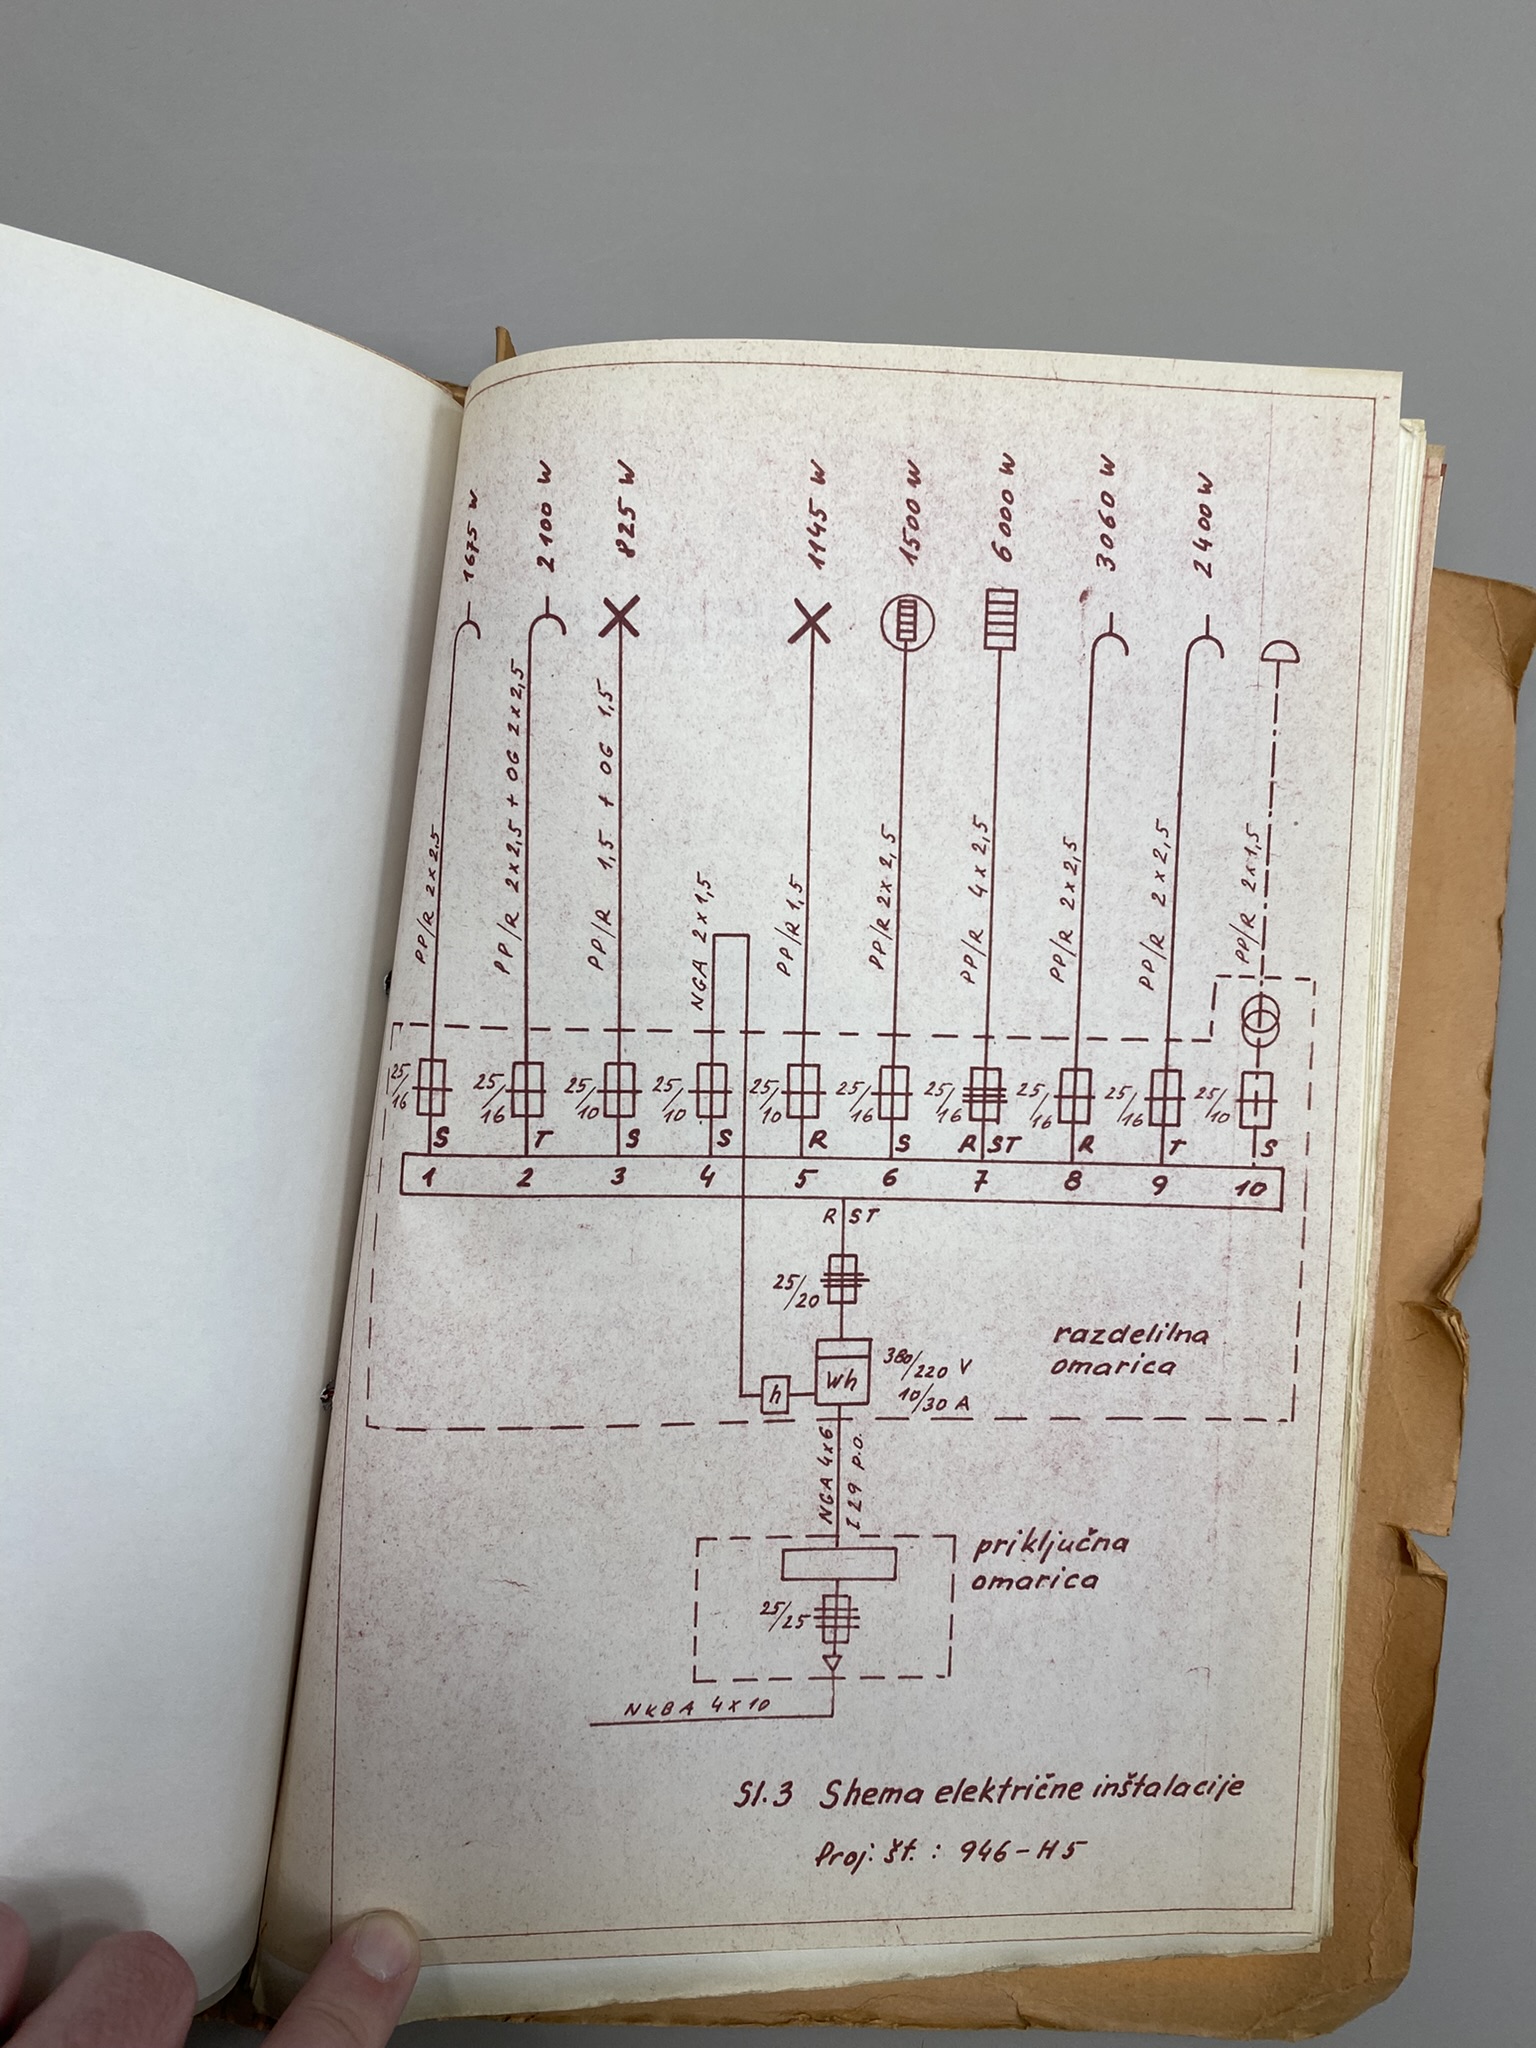 1675 W
2100 W
825 W
1145 W
1500 W
6000 W
3060 W
2400 W
PP/R 2x2.5
PP/R 2x2,5 + OG 2x2,5
PP/R 1,5 + OG 1,5
NGA 2x1,5
PP/R 1,5
PP/R 2x2,5
PP/R 4x2,5
PP/R 2x2,5
PP/R 2x2,5
PP/R 2x1,5
25/16 25/16 25/10 25/10 25/10 25/16 25/16 25/16 25/16 25/10
S T S S R S R ST R T S
1 2 3 4 5 6 7 8 9 10
R ST
25/20
razdelilna
omarica
h
Wh
380/220 V
10/30 A
NGA 4x6
I 29 p.o.
priključna
omarica
25/25
NKBA 4x10
Sl.3 Shema električne inštalacije
Proj. št. : 946-H5